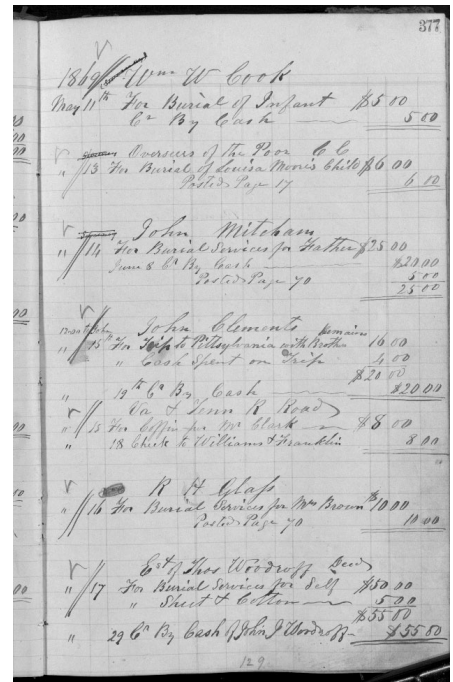 377
1869 Wm W Cook
May 11th For Burial of Infant $5 00
Cr By Cash 5 00
Overseers of the Poor C C
" 13 For Burial of Louisa Moore's Child $6 00
Posted Page 17 6 00
John Mitcham
" 14 For Burial Services for Father $25 00
June 8 Cr By Cash $20 00
Posted Page 70 5 00
25 00
John Clements
Remains
" 15th For Trip to Pittsylvania with Brother 16 00
" Cash Spent on Trip 4 00
$20 00
" 19th Cr By Cash $20 00
Va & Tenn R Road
" 15 For Coffin for Mr Clark $8 00
" 18 Check to Williams & Franklin 8 00
"
R H Glass
" 16 For Burial Services for Mrs Brown $10 00
Posted Page 70 10 00
Est of Thos Woodroff Decd
" 17 For Burial Services for Self $50 00
" Sheet & Cotton 5 00
$55 00
" 29 Cr By Cash of John J Woodroff $55 00
129